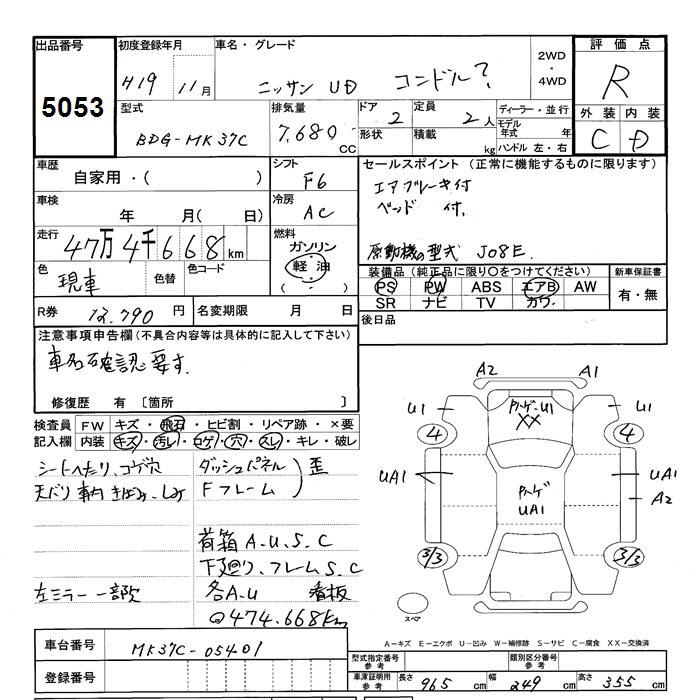 出品番号
5053
初度登録年月
H19 11月
車名・グレード
ニッサン UD コンドル?
2WD
・
4WD
評価点
R
外装 内装
C D
型式
BDG-MK37C
排気量
7,680 CC
ドア 2
形状
定員 2人
積載 kg
ディーラー・並行
モデル年式 年
ハンドル 左・右
車歴
自家用・( )
シフト
F6
車検
年 月( 日)
冷房
AC
走行
47万4千668km
燃料
ガソリン
軽油
色
現車
色替
色コード
セールスポイント(正常に機能するものに限ります)
エアブレーキ付
ベッド 付.
原動機の型式 J08E.
装備品(純正品に限り○をつけてください)
PS PW ABS エアB AW
SR ナビ TV カワ
新車保証書
有・無
R券 12.790 円
名変期限 月 日
後日品
注意事項申告欄(不具合内容等は具体的に記入して下さい)
車名確認要す.
修復歴 有 〔箇所 〕
検査員
記入欄
FW キズ・飛石・ヒビ割・リペア跡・×要
内装 キズ・汚レ・コゲ・穴・スレ・キレ・破レ
シートへたり、コゲ穴
天バリ 車内 きばみ・しみ
ダッシュパネル
Fフレーム
歪
荷箱 A.U.S.C
下廻り、フレーム S.C
左ミラー 一部欠
各A.U 看板
474.668km
A2 A1
U1 ハゲ・U1 U1
XX
4 4
UA1 UA1
ハゲ
UA1
A2
3/3 3/3
スペア
A-キズ E-エクボ U-凹み W-補修跡 S-サビ C-腐食 XX-交換済
車台番号
MK37C-05401
登録番号
型式指定番号
参考
類別区分番号
参考
車庫証明用
参考
長さ 965 cm 幅 249 cm 高さ 355 cm